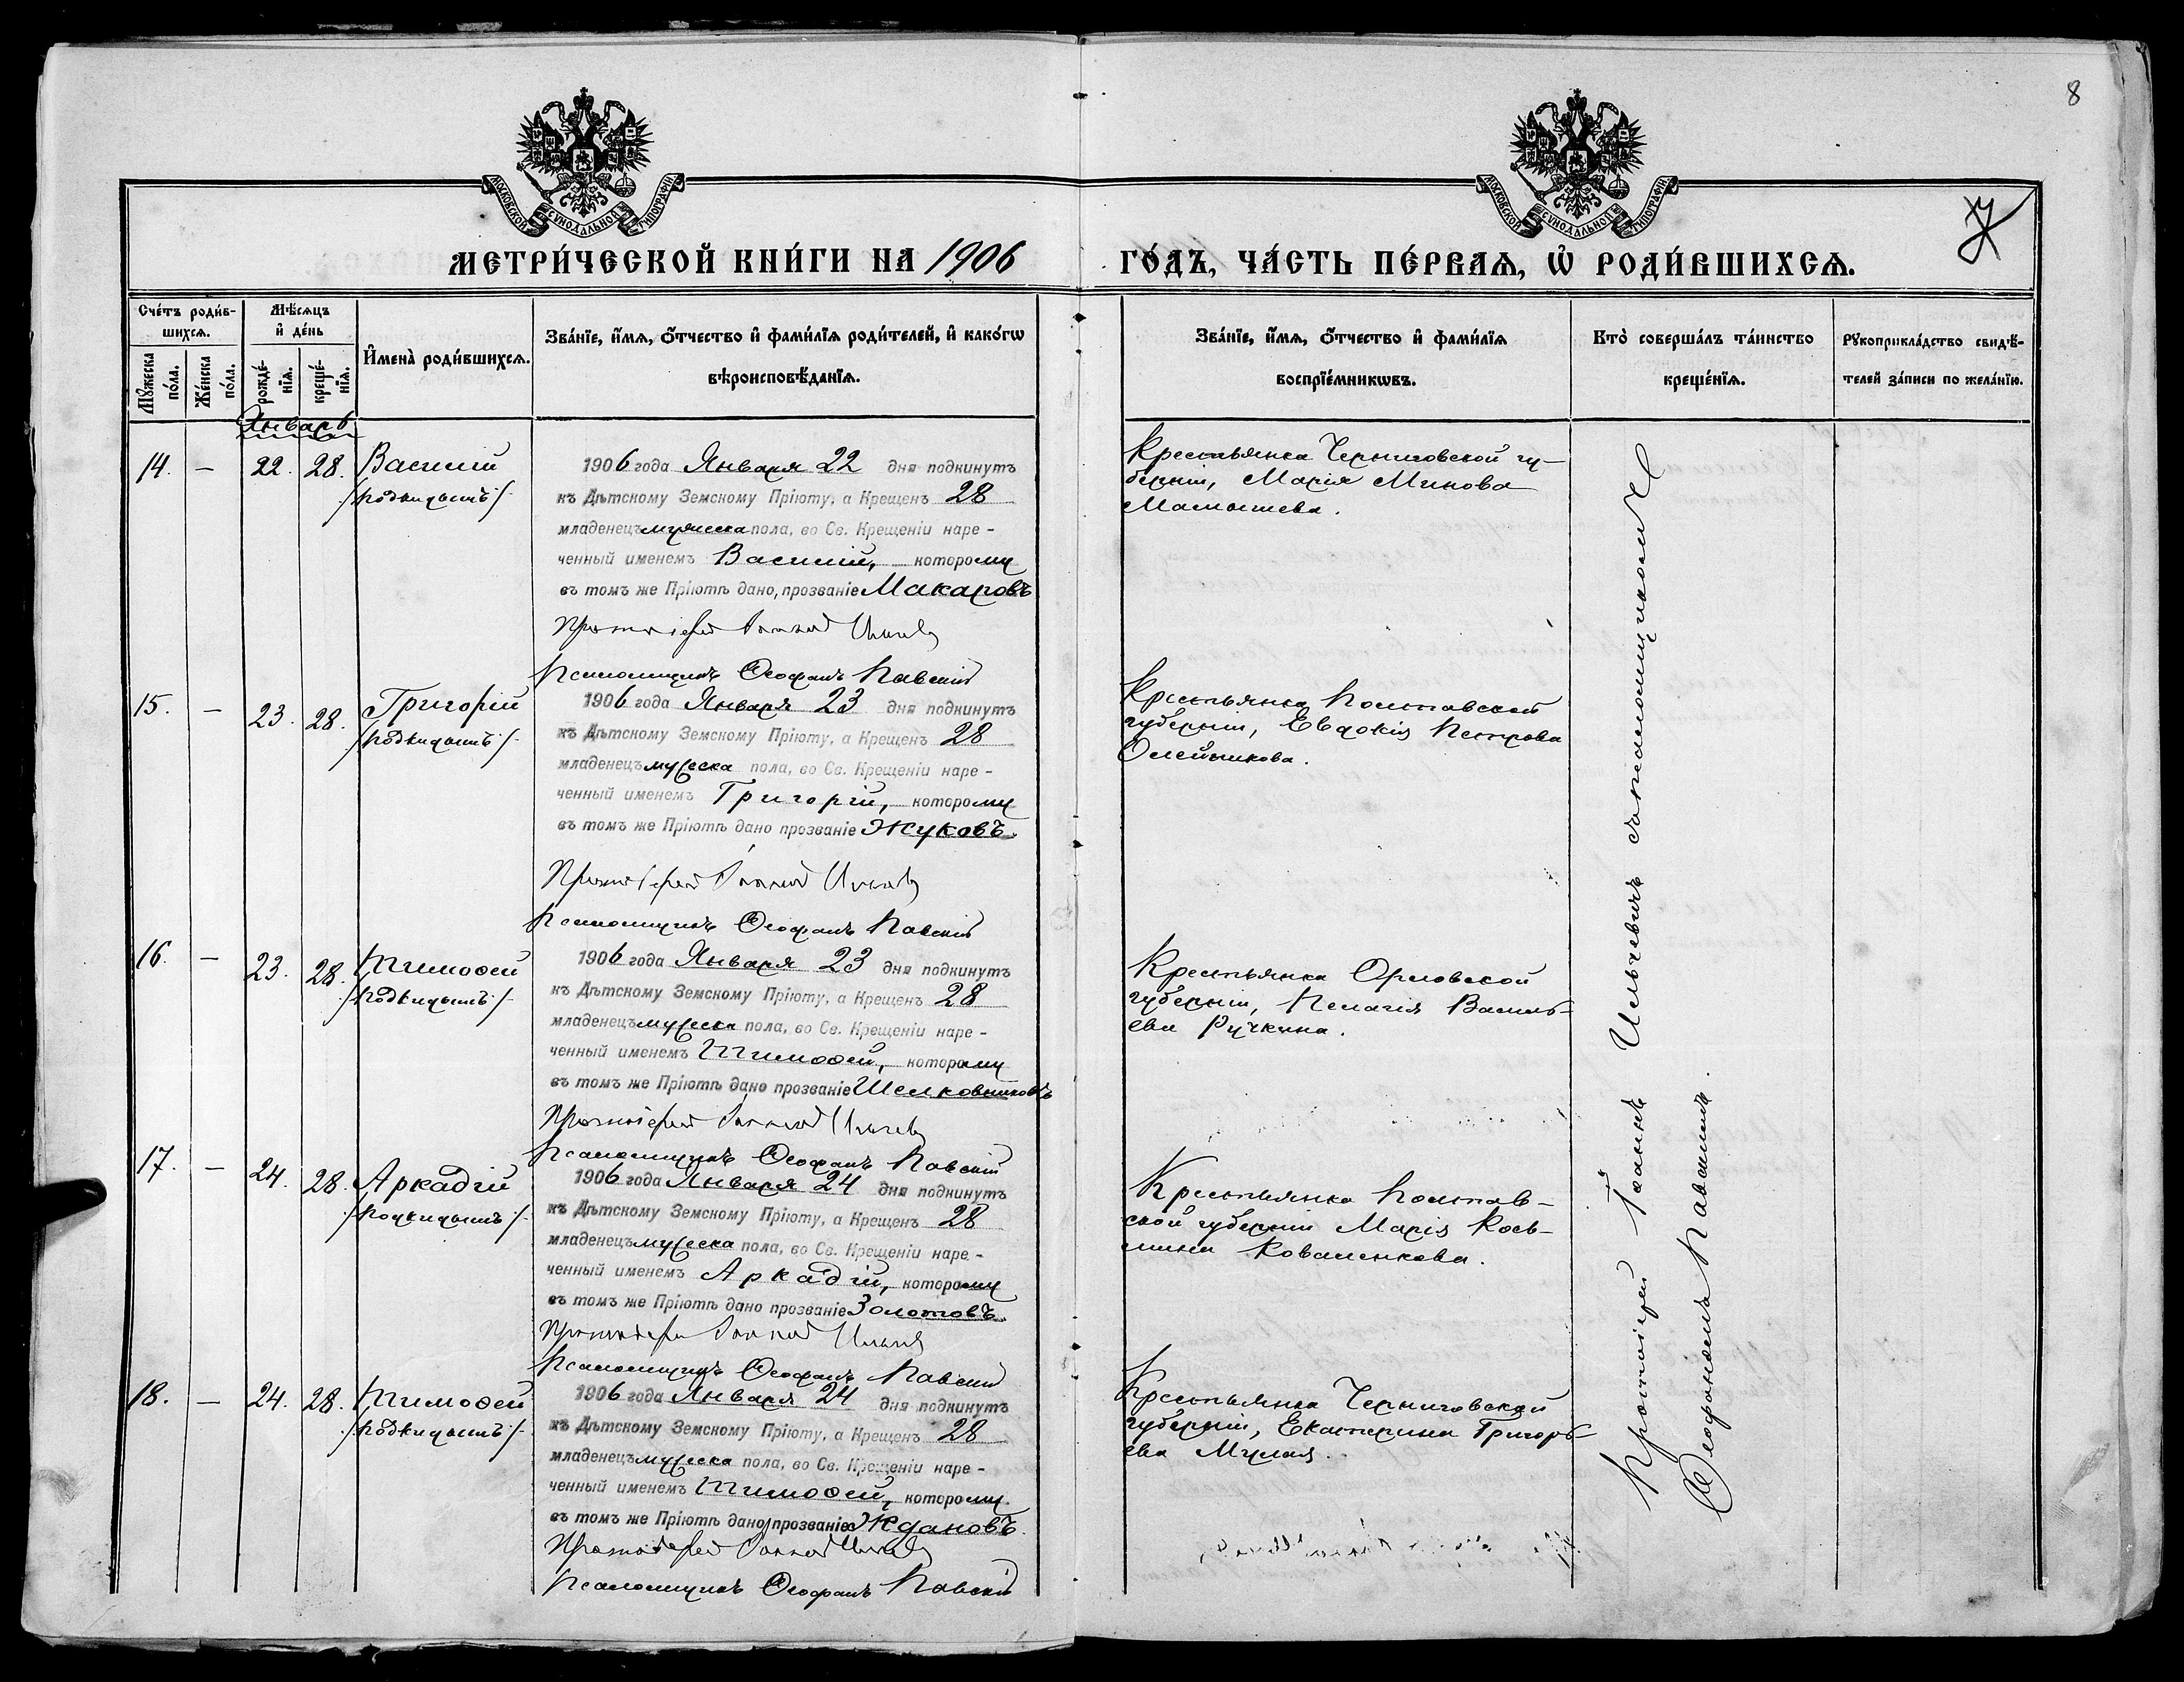 8
МОСКОВСКОЙ СѴНОДАЛЬНОЙ ТИПОГРАФІИ
МОСКОВСКОЙ СѴНОДАЛЬНОЙ ТИПОГРАФІИ
МЕТРИ́ЧЕСКОЙ КНИ́ГИ НА 1906
ГО́ДЪ, ЧА́СТЬ ПЕ́РВАѦ, Ѡ҆ РОДИ́ВШИХСѦ.
7
Сче́тъ роди́в-
шихсѧ.
Мѣ́сѧцъ
и҆ де́нь
Мꙋ́жеска
по́ла.
Же́нска
по́ла.
рожде́-
нїѧ.
креще́-
нїѧ.
И҆мена̀ роди́вшихсѧ.
Зва́нїе, и҆́мѧ, ѻ҆́тчество и҆ фами́лїѧ роди́телей, и҆ како́гѡ
вѣроисповѣ́данїѧ.
Зва́нїе, и҆́мѧ, ѻ҆́тчество и҆ фами́лїѧ
воспрїе́мникѡвъ.
Кто̀ соверша́лъ та́инство
креще́нїѧ.
Рꙋкоприкла́дство свидѣ́-
телей за́писи по жела́нїю.
Январь
14. – 22. 28. Василій
/подкидышъ/.
1906 года Января 22 дня подкинутъ
къ Дѣтскому Земскому Пріюту, а Крещенъ 28
младенецъ мужеска пола, во Св. Крещеніи наре-
ченный именемъ Василій, которому
въ томъ же Пріютѣ дано, прозваніе Макаровъ
Протоіерей Іоаннъ
Псаломщикъ Ѳеофанъ Павскій
Крестьянка Черниговской гу-
берніи, Марія Минова
Мамышева.
15. – 23. 28. Григорій
/подкидышъ/.
1906 года Января 23 дня подкинутъ
къ Дѣтскому Земскому Пріюту, а Крещенъ 28
младенецъ мужеска пола, во Св. Крещеніи наре-
ченный именемъ Григорій, которому
въ томъ же Пріютѣ дано прозваніе Жуковъ.
Протоіерей Іоаннъ
Псаломщикъ Ѳеофанъ Павскій
Крестьянка Полтавской
губерніи, Евдокія Петрова
Олейникова.
16. – 23. 28. Тимоѳей
/подкидышъ/.
1906 года Января 23 дня подкинутъ
къ Дѣтскому Земскому Пріюту, а Крещенъ 28
младенецъ мужеска пола, во Св. Крещеніи наре-
ченный именемъ Тимоѳей, которому
въ томъ же Пріютѣ дано прозваніе Шелковниковъ
Протоіерей Іоаннъ
Псаломщикъ Ѳеофанъ Павскій
Крестьянка Орловской
губерніи, Пелагія Василь-
ева Ручкина.
17. – 24. 28. Аркадій
/подкидышъ/.
1906 года Января 24 дня подкинутъ
къ Дѣтскому Земскому Пріюту, а Крещенъ 28
младенецъ мужеска пола, во Св. Крещеніи наре-
ченный именемъ Аркадій, которому
въ томъ же Пріютѣ дано прозваніе Золотовъ.
Протоіерей Іоаннъ
Псаломщикъ Ѳеофанъ Павскій
Крестьянка Полтав-
ской губерніи Марія Кось-
мина Коваленкова.
18. – 24. 28. Тимоѳей
/подкидышъ/.
1906 года Января 24 дня подкинутъ
къ Дѣтскому Земскому Пріюту, а Крещенъ 28
младенецъ мужеска пола, во Св. Крещеніи наре-
ченный именемъ Тимоѳей, которому
въ томъ же Пріютѣ дано прозваніе Ждановъ.
Протоіерей Іоаннъ
Псаломщикъ Ѳеофанъ Павскій
Крестьянка Черниговской
губерніи, Екатерина Григорь-
ева Мулая.
Протоіерей Іоаннъ Ильчевичъ съ псаломщикомъ
Ѳеофаномъ Павскимъ.